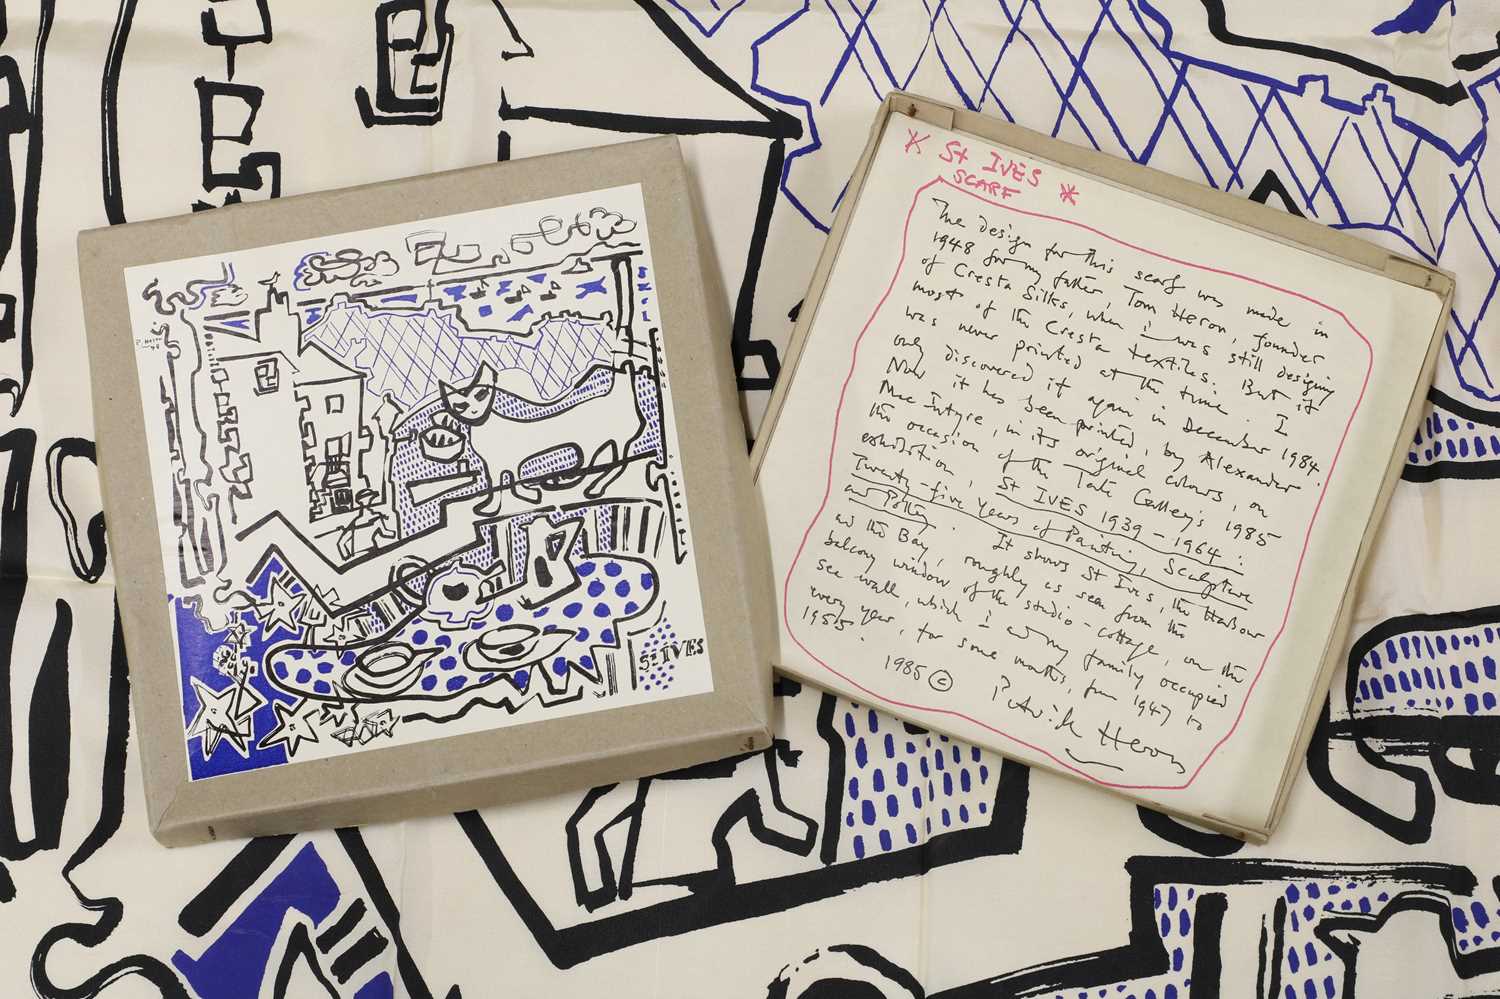 P. HERON
48
ST IVES
* St IVES *
SCARF
The design for this scarf was made in
1948 for my father, Tom Heron, founder
of Cresta Silks, when I was still designing
most of the Cresta textiles. But it
was never printed at the time. I
only discovered it again in December 1984.
Now it has been printed, by Alexander
MacIntyre, in its original colours, on
the occasion of the Tate Gallery's 1985
exhibition, St IVES 1939-1964:
Twenty-five Years of Painting, Sculpture
and Pottery. It shows St Ives, the Harbour
and the Bay, roughly as seen from the
balcony window of the studio-cottage, on the
sea wall, which I and my family occupied
every year, for some months, from 1947 to
1955.
1985 ©
Patrick Heron